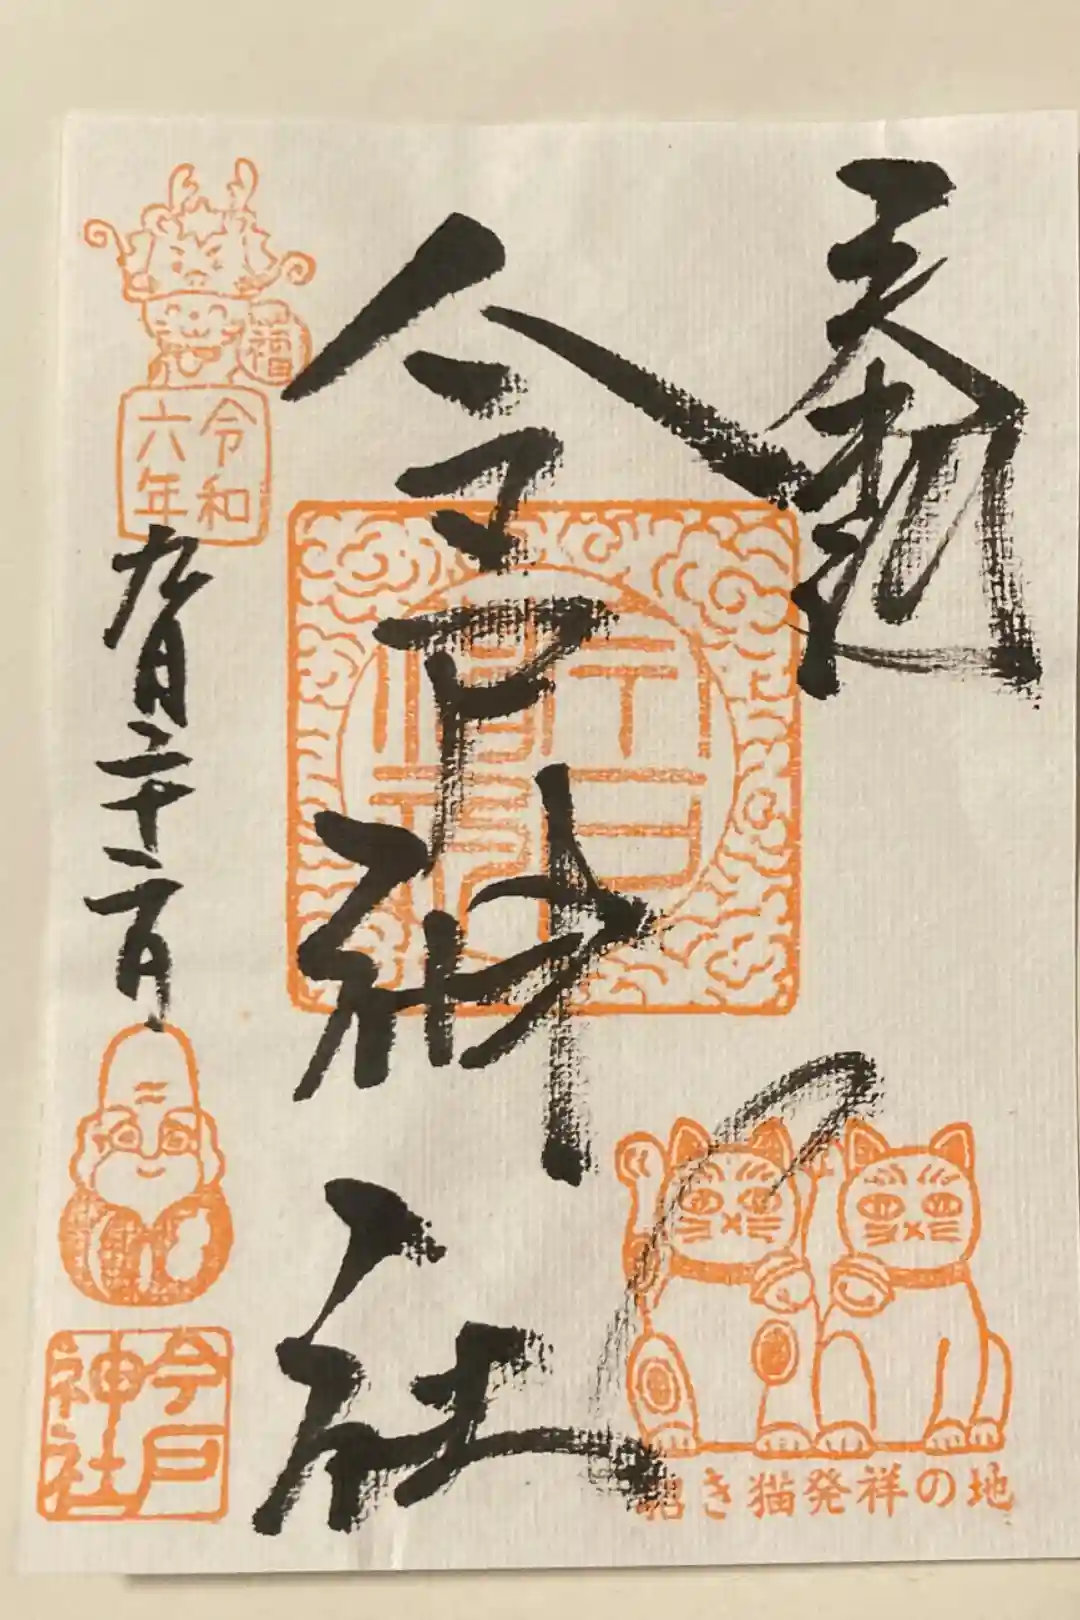 奉拝
今戸神社
福
令和
六年
九月二十二日
今戸
神社
招き猫発祥の地